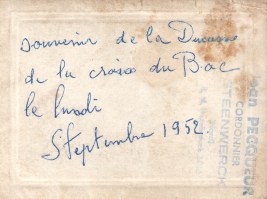 souvenir de la Ducasse
de la croix du Bac
le lundi
Septembre 1952.
PECQUEUR
CORDONNIER
STEENWERCK